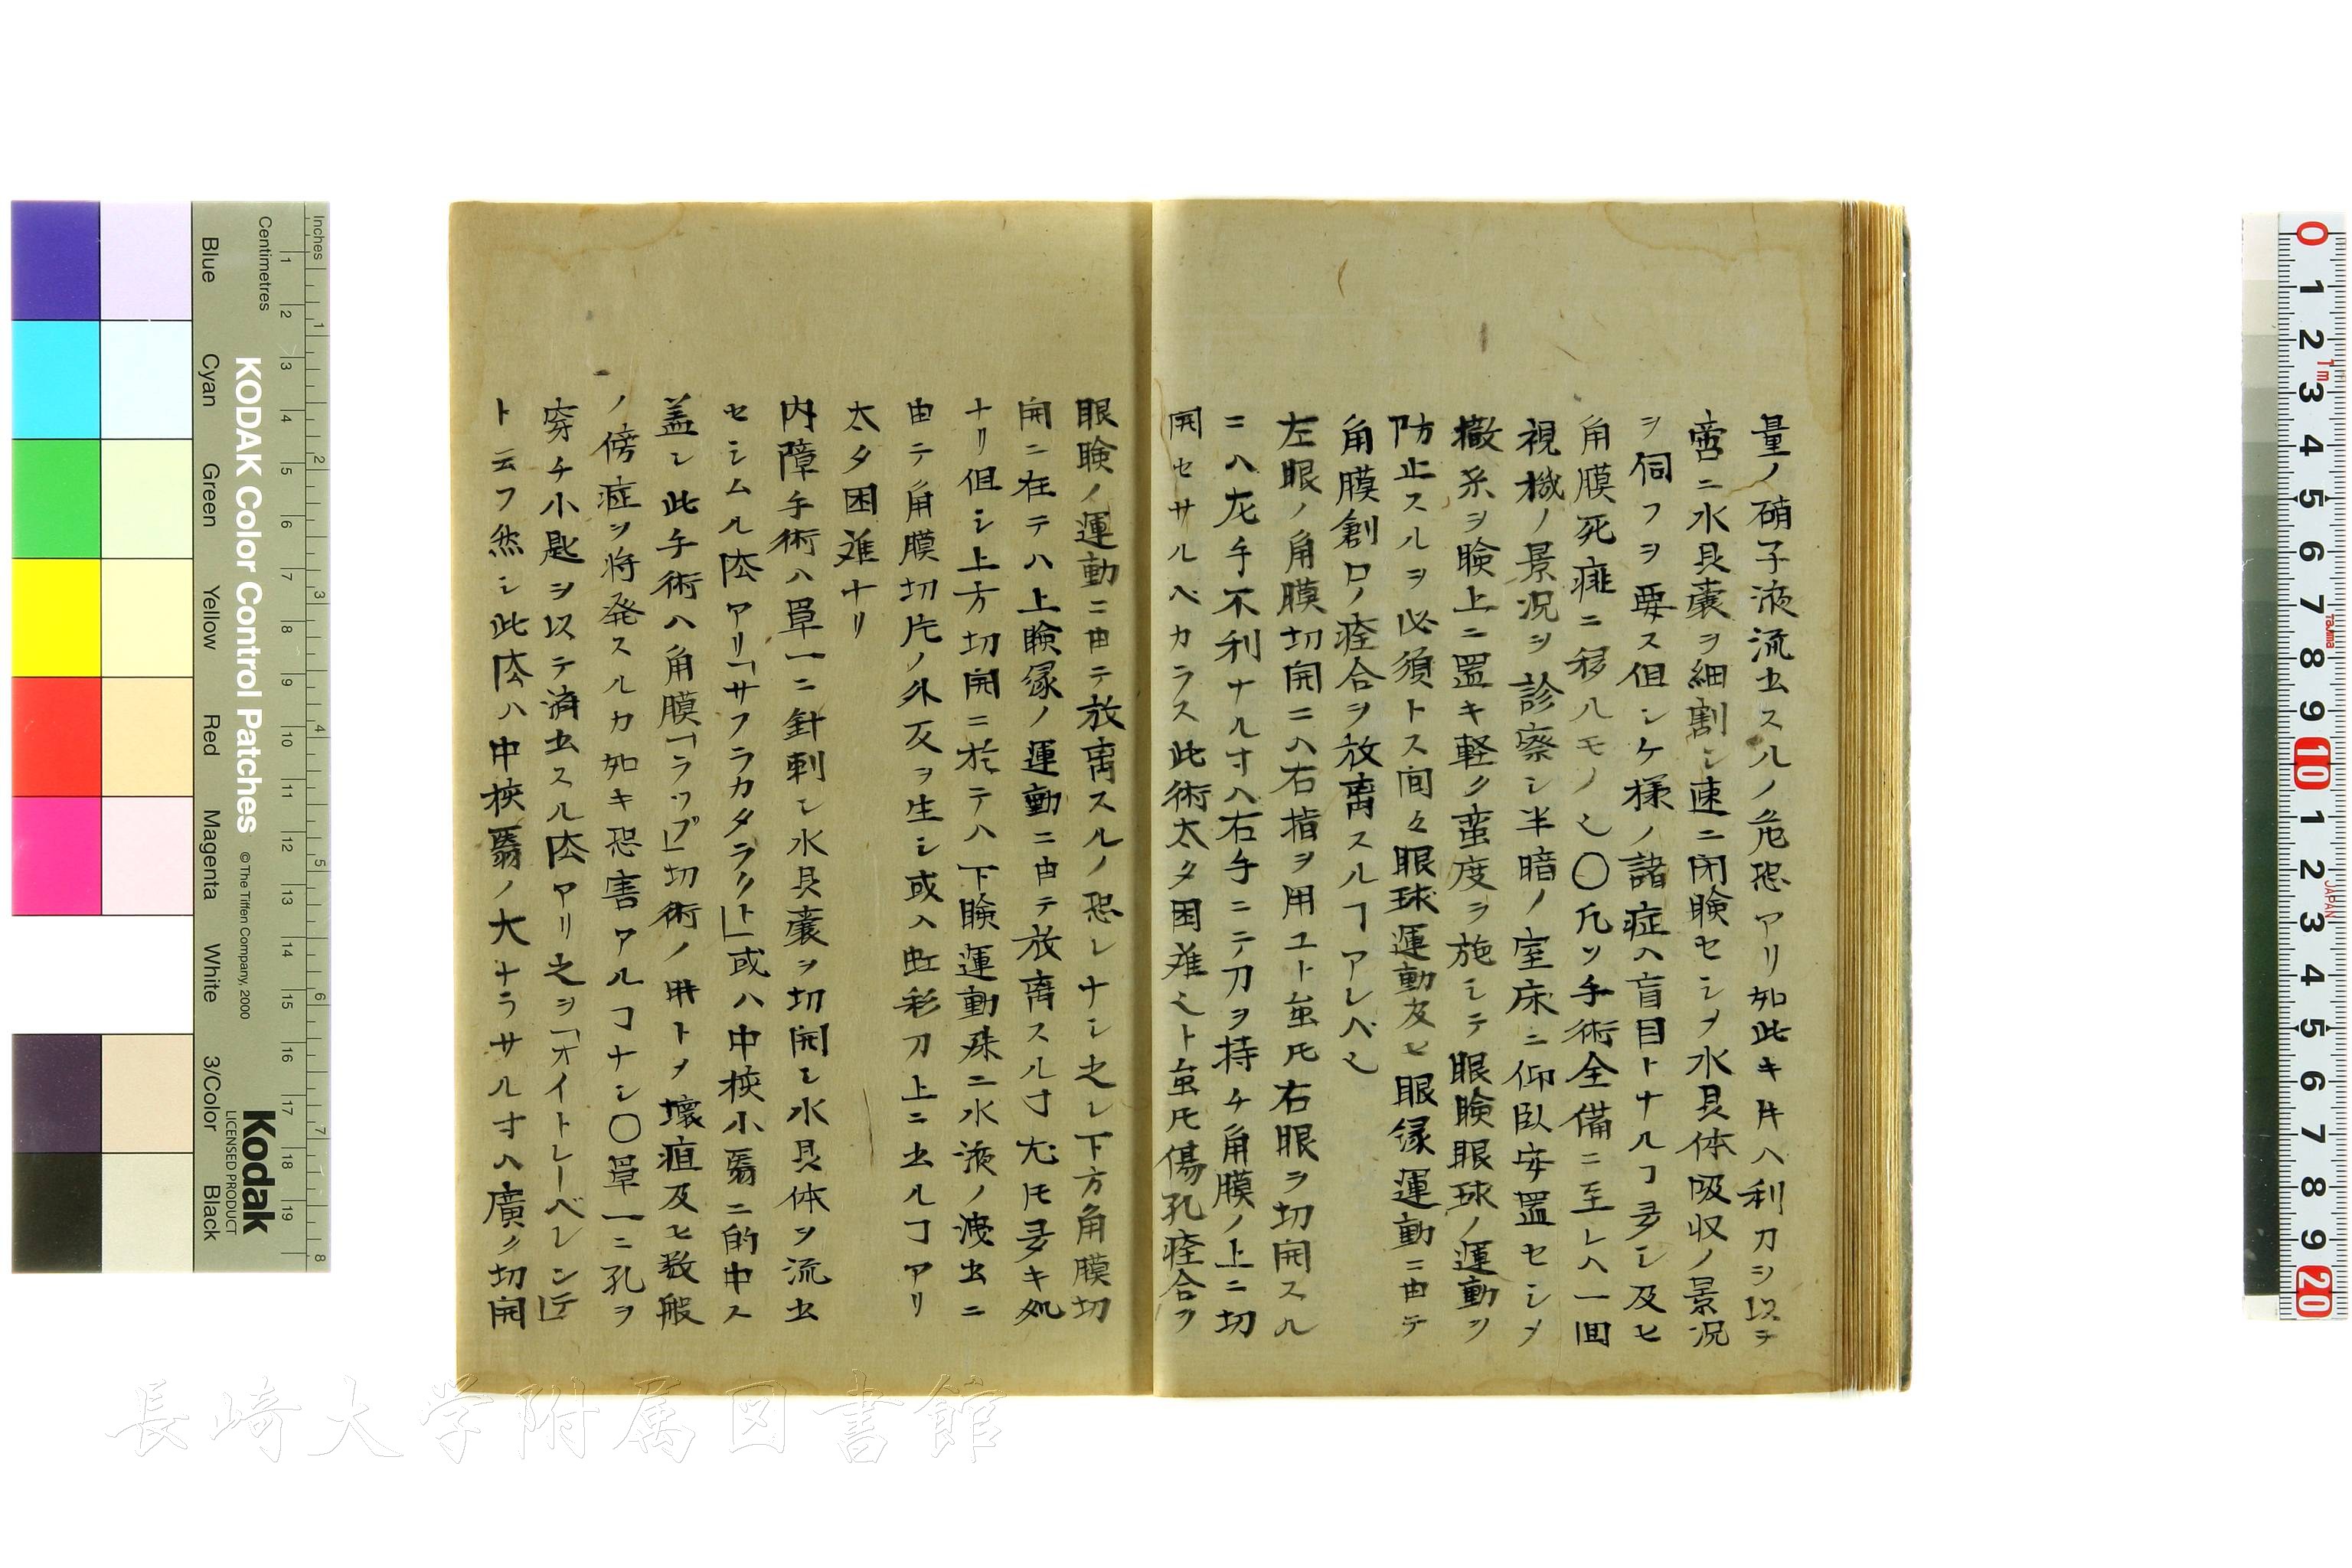 量ノ硝子液流出スルノ危恐アリ如此キ片ハ利刀ヲ以テ
啻ニ水晶嚢ヲ細割シ速ニ閉瞼セシメ水晶体吸収ノ景況
ヲ伺フヲ要ス但シケ様ノ諸症ハ盲目トナルヿ多シ及ヒ
角膜死瘫ニ移ルモノ也〇凡ソ手術全備ニ至レハ一回
視機ノ景況ヲ診察シ半暗ノ室床ニ仰臥安置セシメ
撒糸ヲ瞼上ニ置キ軽ク蛮度ヲ施シテ眼瞼眼球ノ運動ヲ
防止スルヲ必須トス間々眼球運動及ヒ眼縁運動ニ由テ
角膜創口ノ痊合ヲ放离スルヿアレハ也
左眼ノ角膜切開ニハ右指ヲ用ユト虽𪜈右眼ヲ切開スル
ニハ左手不利ナル寸ハ右手ニテ刀ヲ持チ角膜ノ上ニ切
開セサルベカラス此術太タ困难也ト虽𪜈傷孔痊合ヲ
眼瞼ノ運動ニ由テ放离スルノ恐レナシ之レ下方角膜切
開ニ在テハ上瞼縁ノ運動ニ由テ放离スル寸尤モ多キ処
ナリ但シ上方切開ニ於テハ下瞼運動殊ニ水液ノ洩出ニ
由テ角膜切片ノ外反ヲ生シ或ハ虹彩刀上ニ出ルヿアリ
太タ困难ナリ
内障手術ハ単一ニ針刺シ水晶嚢ヲ切開シ水晶体ヲ流出
セシムル法アリ「サフラカタラクト」或ハ中挾小翳ニ的中ス
盖シ此手術ハ角膜「ラップ」切術ノ時トメ壊疽及ヒ数般
ノ傍症ヲ将発スルカ如キ恐害アルヿナシ〇単一ニ孔ヲ
穿チ小匙ヲ以テ済出スル法アリ之ヲ「オイトレーベレン」テ
ト云フ然シ此法ハ中挾翳ノ大ナラサル寸ハ廣ク切開
KODAK Color Control Patches
© The Tiffen Company, 2000
Kodak
LICENSED PRODUCT
Inches
Centimetres
Blue
Cyan
Green
Yellow
Red
Magenta
White
3/Color
Black
長崎大学附属図書館